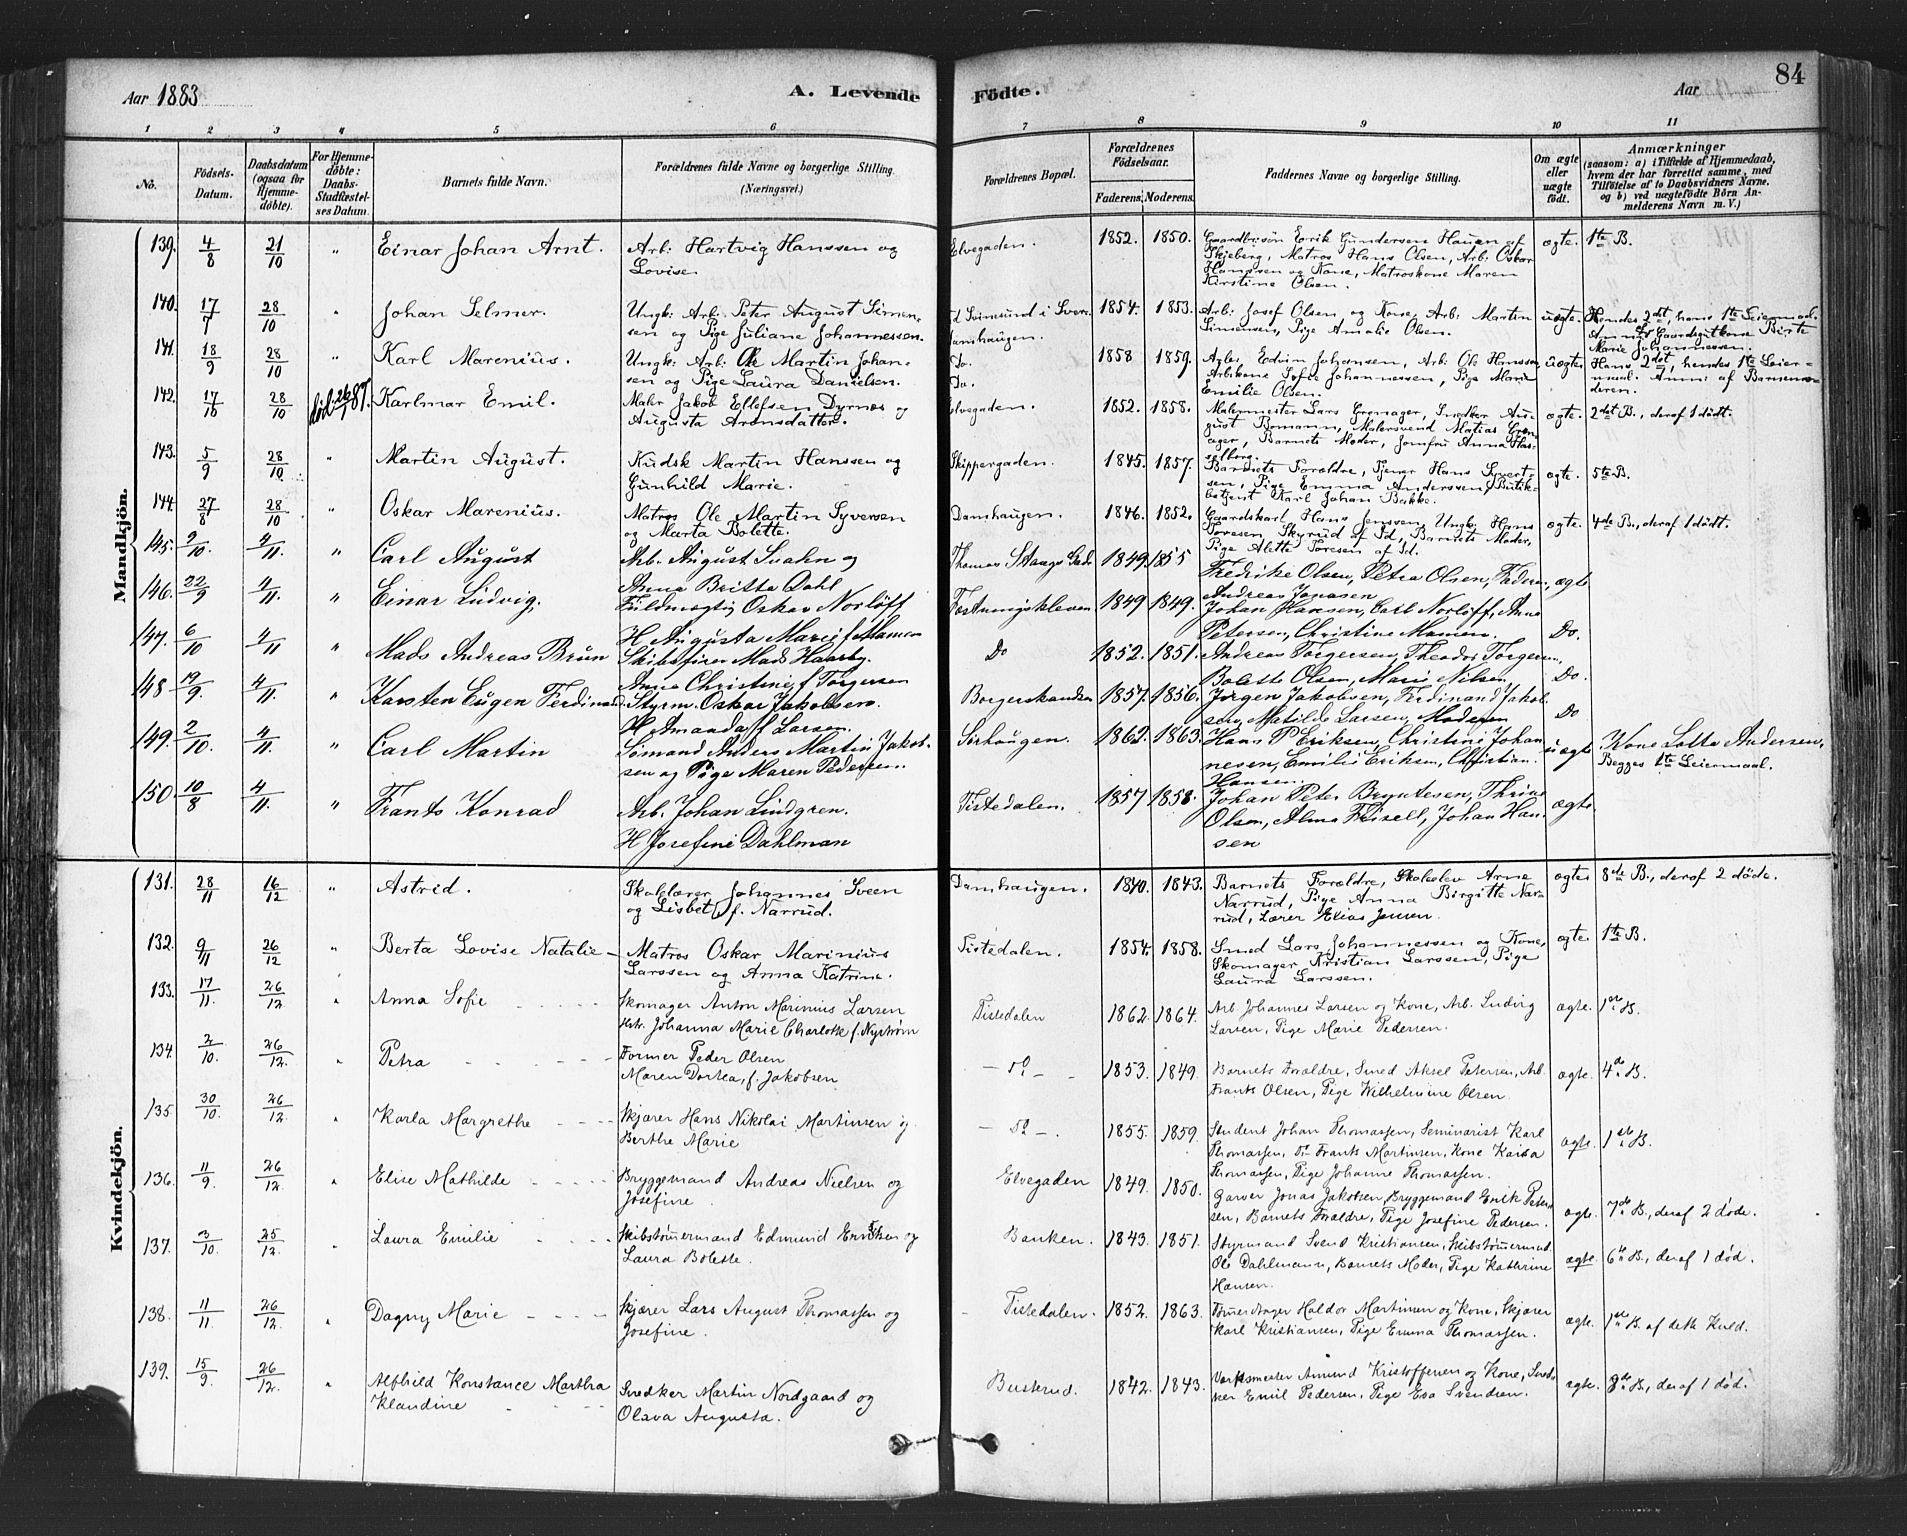 Aar 1883
A. Levende Födte.
Aar
84
1 2 3 4 5 6 7 8 9 10 11
No.
Födsels-Datum.
Daabsdatum (ogsaa for Hjemme-döbte).
For Hjemme-döbte: Daabs-Stadfæstel-ses Datum.
Barnets fulde Navn.
Forældrenes fulde Navne og borgerlige Stilling (Næringsvei.)
Forældrenes Bopæl.
Forældrenes Födselsaar.
Faderens. Moderens.
Faddernes Navne og borgerlige Stilling.
Om ægte eller uægte födt.
Anmærkninger (saasom: a) i Tilfælde af Hjemmedaab, hvem der har forrettet samme, med Tilföielse af to Daabsvidners Navne, og b) ved uægtefödte Börn An-melderens Navn m. V.)
Mandkjön.
139. 4/8 21/10 " Einar Johan Arnt. Arb. Hartvig Hanssen og Elvegaden. 1852. 1850. Gaardbr.sön Erik Gundersen Hauen af ægte. 1te B.
Lovise Skjeberg, Matros Hans Olsen, Arb. Oskar
Hanssen og Kone, Matroskone Maren
Kirstine Olsen.
140. 17/7 28/10 " Johan Selmer. Ungk. Arb. Peter August Simen- Svinesund i Sver. 1854. 1853. Arb. Josef Olsen og Kone, Arb. Martin uægte. Hendes 2det, hans 1te Leiermaal.
sen og Pige Juliane Johannessen. Damhaugen. Simensen, Pige Amalie Olsen. Birte
Marie Johannessen.
141. 18/9 28/10 " Karl Marenius. Ungk. Arb. Ole Martin Johan- Do. 1858 1859. Edvin Johansen, Arb. Ole Hanssen, uægte Hans 2det, hendes 1te Leier-
sen og Pige Laura Danielsen. Do. Arbkone Sofie Johannessen, Pige Marie maal. Anm: af Barnemo-
Emilie Olsen. deren.
142. 17/10 28/10 död 26/1 87. Karlmar Emil. Maler Jakob Ellefsen Dyrnes og Elvegaden. 1852. 1858. Malermester Lars Grönager, Snedker Au- ægte. 2det B., deraf 1 dödt.
Augusta Aronsdatter. gust Bomann, Malersvend Matias Grön-
ager, Barnets Moder, Jomfru Anna Has-
selborg.
143. 5/9 28/10 " Martin August. Kudsk Martin Hanssen og Skippergaden. 1845. 1857. Barnets Forældre, Tjener Hans Syvert- ægte. 5te B.
Gunhild Marie. sen, Pige Emma Anderssen, Butik-
betjent Karl Johan Bakke.
144. 27/8 28/10 " Oskar Marenius. Matros Ole Martin Syversen Damhaugen. 1846. 1852. Gaardskarl Hans Jenssen, Ungk. Hans ægte. 4de B., deraf 1 dödt.
og Marta Bolette. Toresen, Skyrud af Id, Barnets Moder,
Pige Alette Toresen af Id.
145. 9/10. 4/11. " Carl August Arb. August Svahn og Thomas Stangs Gade 1849. 1855 Fredrike Olsen, Petra Olsen, Faderen, ægte
Anna Britta Dahl Andreas Jonasen
146. 22/9 4/11. " Einar Ludvig. Fuldmægtig Oskar Norlöff Fæstningskleven 1849 1849. Johan Hansen, Carl Norlöff, Anna
H Augusta Marie f Mamen Petersen, Christine Mamen. Do.
147. 6/10 4/11 " Mads Andreas Brun Skibsförer Mads Haarby. Do 1852. 1851. Andreas Torgersen, Theodor Torgersen,
Anna Christine f Torgersen Bolette Olsen, Marie Nilsen. Do.
148 19/9. 4/11. " Karsten Eugen Ferdinand Styrm. Oskar Jakobsen. Borgerskandsen 1857. 1856. Jörgen Jakobsen, Ferdinand Jakob-
H Amanda f Larsen. sen, Matilde Larsen, Moderen Do
149. 2/10. 4/11. " Carl Martin Sömand Anders Martin Jakob- Sörhaugen. 1862. 1863. Hans P Eriksen, Christine Johan uægte Kone Lotte Andersen,
sen og Pige Maren Pedersen. nesen, Emilie Eriksen, Christian Begges 1te Leiermaal.
Hansen.
150. 10/8 4/11. " Frants Konrad Arb. Johan Lindgren. Tistedalen. 1857 1858. Johan Peter Bryntesen, Thrine ægte
H Josefine Dahlman Olsen, Alma Frisell, Johan Han-
sen
Kvindekjön.
131. 28/11 16/12 " Astrid. Skolelærer Johannes Sveen Damhaugen. 1840. 1843. Barnets Forældre, Skoleelev Arne ægte 8de B., deraf 2 döde.
og Lisbet, f. Narrud. Narrud, Pige Anna Birgitte Nar-
rud, Lærer Elias Jensen.
132. 9/11 26/12 " Berta Lovise Natalie Matros Oskar Marinius Tistedalen. 1854. 1858. Smed Lars Johannessen og Kone, ægte 1te B.
Larssen og Anna Katrine. Skomager Kristian Larssen, Pige
Laura Larssen.
133. 17/11. 26/12 " Anna Sofie Skomager Anton Marinius Larsen Tistedalen 1862. 1864. Arb. Johannes Larsen og Kone, Arb. Ludvig ægte. 1ste B.
Johanna Marie Charlotte f. Nyström Larsen, Pige Marie Pedersen.
134. 2/10. 26/12. " Petra Former Peder Olsen - do - 1853. 1849. Barnets Forældre, Smed Aksel Petersen, Arb. ægte. 4de B.
Maren Dortea, f. Jakobsen Frants Olsen, Pige Wilhelmine Olsen.
135. 30/10. 26/12. " Karla Margrethe Skjærer Hans Nikolai Martinsen og - do -. 1855. 1859. Student Johan Thomassen, Seminarist Karl ægte. 1ste B.
Berthe Marie Thomassen, Frants Martinsen, Kone Karen
Thomassen, Pige Johanne Thomassen.
136. 11/9. 26/12 " Elise Mathilde Bryggemand Andreas Nielsen og Elvegaden 1849. 1850. Garver Jonas Jakobsen, Bryggemand Erik Peter- ægte. 7de B., deraf 2 döde.
Josefine sen, Barnets Forældre, Pige Josefine Pedersen.
137. 3/10. 25/12. " Laura Emilie Skibstömmermand Edmund Eriksen og Banken. 1843. 1851. Styrmand Svend Kristiansen, Skibstömmermand ægte. 6te B., deraf 1 död.
Laura Bolette. Ole Dahlmann, Barnets Moder, Pige Kathrine
Hansen.
138. 11/11. 26/12. " Dagny Marie Skjærer Lars August Thomassen og Tistedalen. 1852. 1863. Haldor Martinsen og Kone, Skjærer ægte. 1ste B. af dette Kuld.
Josefine. Karl Kristiansen, Pige Emma Thomassen.
139. 15/9. 26/12. " Alfhild Konstance Martha Snedker Martin Nordgaard og Busterud. 1842. 1843. Værksmester Amund Kristoffersen og Kone, Sned- ægte. 8de B., deraf 1 död.
Klandine Olava Augusta. ker Emil Pedersen, Pige Eva Svendsen.